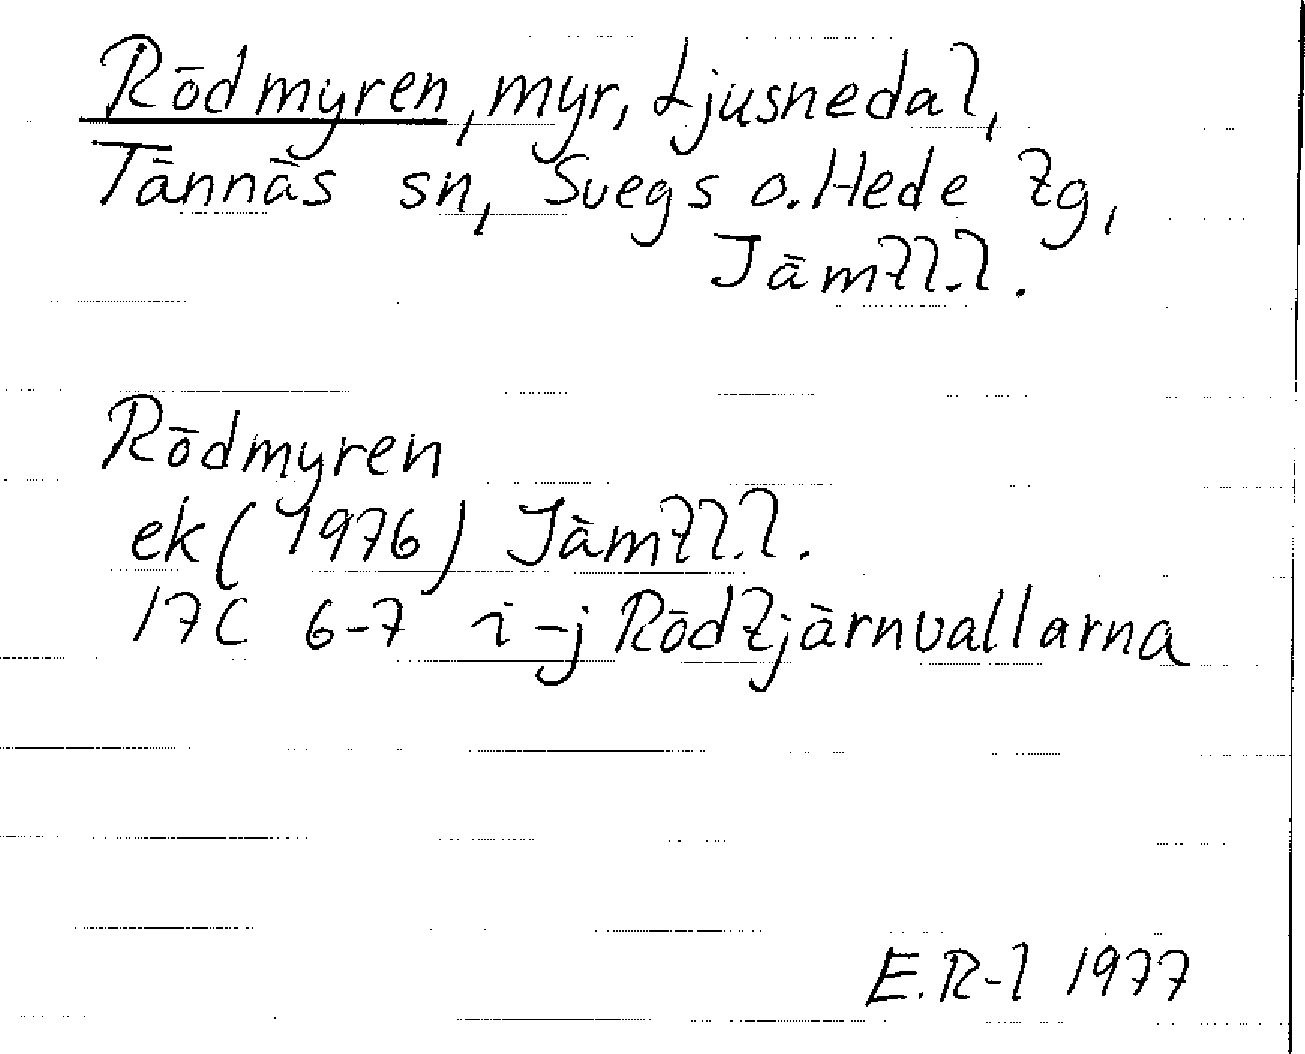 Rödmyren, myr, Ljusnedal,
Tännäs sn, Svegs o. Hede tg,
Jämtl. l.
Rödmyren
ek (1976) Jämtl. l.
17C 6-7 i-j Rödtjärnvallarna
E.R-l 1977